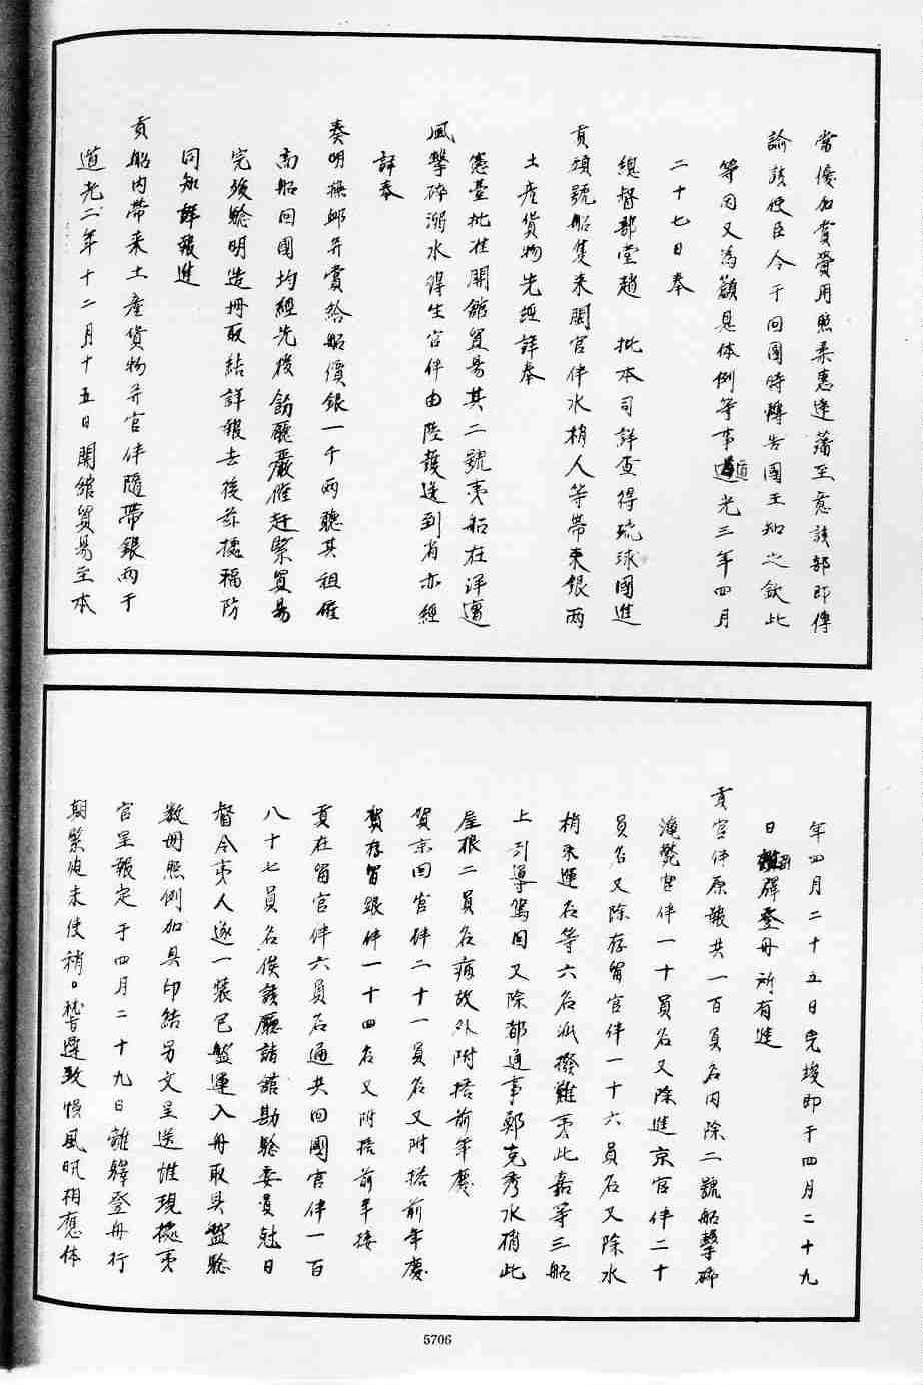 當優加賞賚用照柔惠遠藩至意該部即傳
諭該使臣令于回國時轉告國王知之欽此
等因又為籲見体例等事道光三年四月
二十七日奉
總督部堂趙　批本司詳查得琉球國進
貢頭號船隻來閩官伴水梢人等帶來銀兩
土產貨物先經詳奉
憲臺批准開館貿易其二號夷船在洋遭
風擊碎溺水得生官伴由陸護送到省亦經
詳奉
奏明撫卹并賞給船價銀一千兩聽其租雇
商船回國均經先後飭廳嚴催赶緊貿易
完竣騐明造冊取結詳報去後茲據福防
同知詳報進
貢船內帶来土產貨物并官伴隨帶銀兩于
道光二年十二月十五日開館貿易至本
年四月二十五日完竣即于四月二十九
日離驛登舟所有進
貢官伴原報共一百員名內除二號船擊碎
淹斃官伴一十員名又除進京官伴二十
員名又除存留官伴一十六員名又除水
梢来運石等六名派撥難夷比嘉等三船
上引導駕回又除都通事鄭克秀水梢比
屋根二員名病故外附搭前年慶
賀京回官伴二十一員名又附搭前年慶
賀存留銀伴一十四名又附搭前年接
貢在留官伴六員名通共回國官伴一百
八十七員名俟該廳詣舘勘騐委員尅日
督令夷人逐一裝包盤運入舟取具盤騐
数冊照例加具印結另文呈送惟現據夷
官呈報定于四月二十九日離驛登舟行
期緊迫未使稍。稽遲致悞風汛相應体
5706